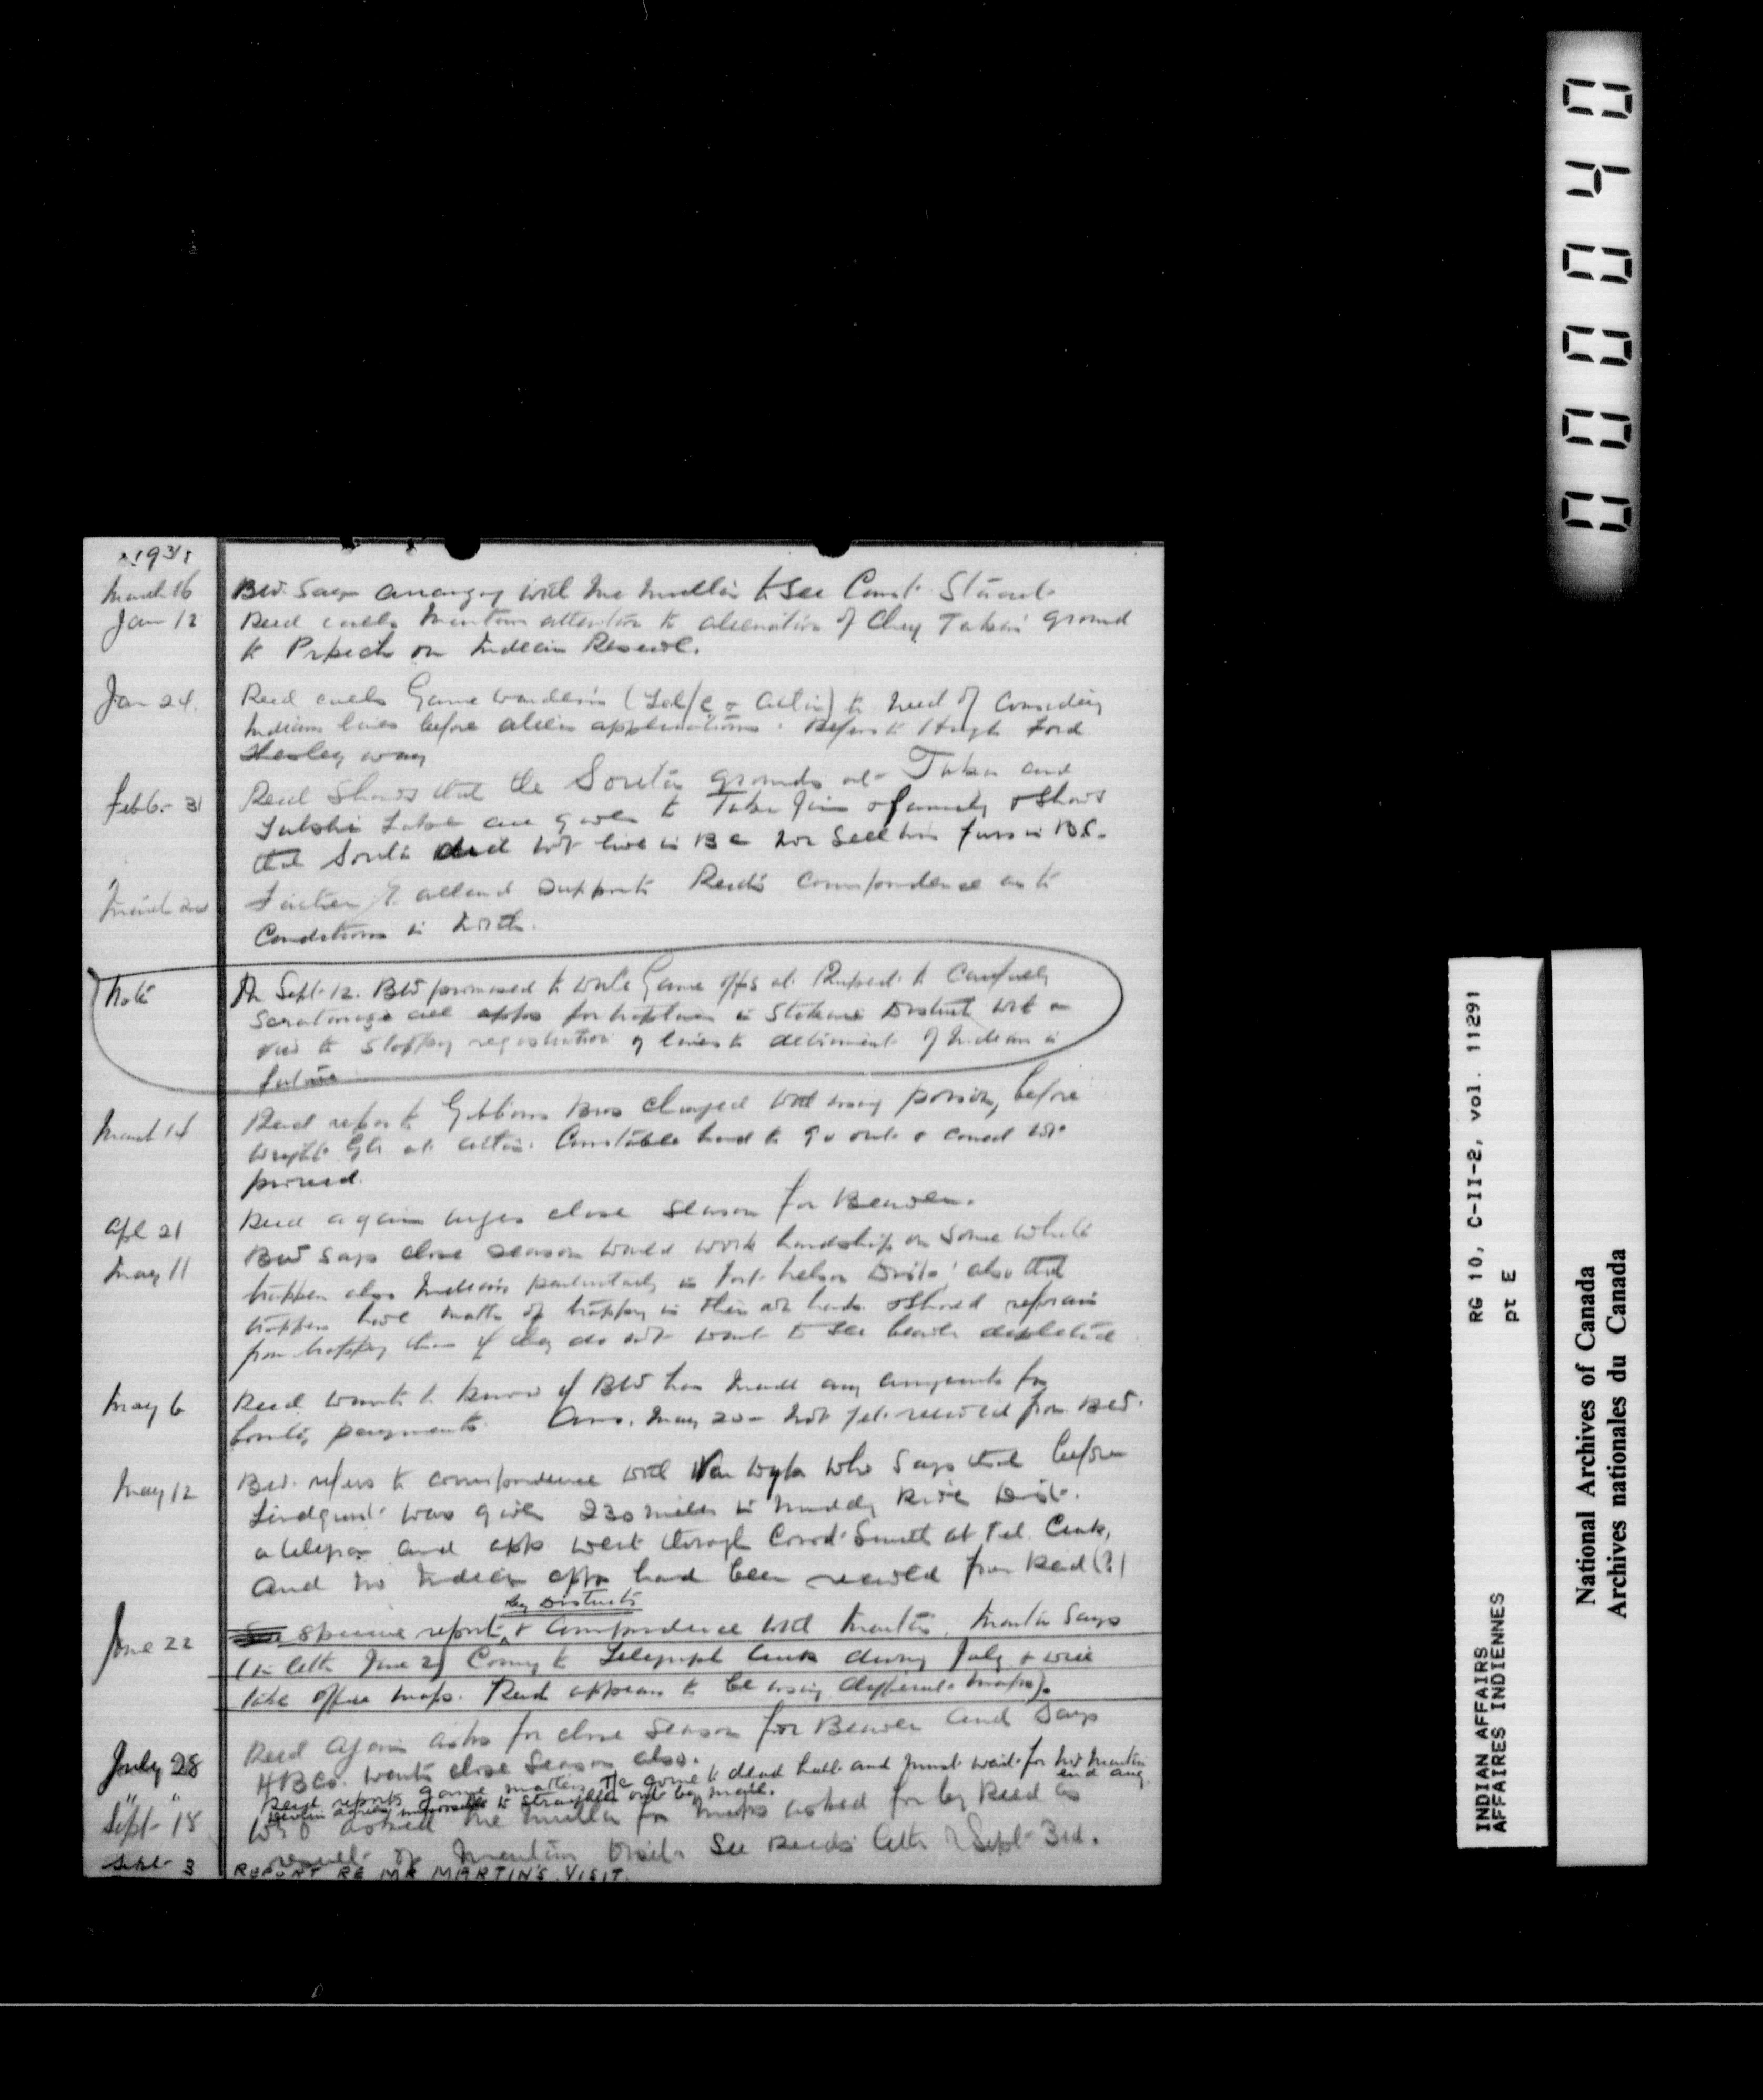 1931
March 16 BW. says arranging with McMullin to see Const. Stewart
Jan 12 Reed calls attention to alienation of Chief Takus ground
to on Indian Reserve.
Jan 24. Reed calls Game wardens (Tel/C & Atlin) to need of considering
Indians lines before alien applications. Refers to Hugh Ford
way
Feb 6 - 31 Reed shows that the grounds at Taku and
Lake are given to Taku Jim & family & shows
that did not live in BC nor sell his furs in BC.
March Father Allard supports Reed's correspondence as to
conditions in North.
Note On Sept. 12. BW promised to write Game offs at Rupert to carefully
Scrutinize all apps for traplines in Stikine District with a
view to stopping registration of lines to detriment of Indians in
future
March 14 Reed reports Gibbons Bros charged with using poison, before
Wright at Atlin. Constable had to go out & could not
proceed.
Apl 21 Reed again urges close season for Beaver.
May 11 BW says close season would work hardship on some white
trappers also Indians particularly in Fort Nelson Distr. also that
trappers have matter of trapping in their own hands & should refrain
from trapping them if they do not want to see beaver depleted
May 6 Reed wants to know if BW has made any arrangements for
bounty payments. Ans. May 20 - Not yet received from BW.
May 12 BW. refers to correspondence with Van Dyk who says that before
Lindquist was given 230 miles in Muddy River Dist.
a telegram and app. went through Const. Smith at Tel. Creek,
and no Indian apps had been received from Reed (?)
by Districts
June 22 special report & Correspondence with Martin. Martin says
(in letter June 2) Coming to Telegraph Creek during July & will
take office maps. Reed appears to be using different maps).
July 28 Reed again asks for close season for Beaver and says
HBCo. wants close season also.
" " Reed reports game matters T/C come to dead halt and must wait for Mr Martin
end Aug.
to straighten out by mail.
Sept - 18 asked McMullin for maps asked for by Reed as
result of Martin's visit. See Reeds letter of Sept 3rd.
Sept - 3 REPORT RE MR MARTIN'S VISIT.
000040
RG 10, C-II-2, vol. 11291
pt E
INDIAN AFFAIRS
AFFAIRES INDIENNES
National Archives of Canada
Archives nationales du Canada